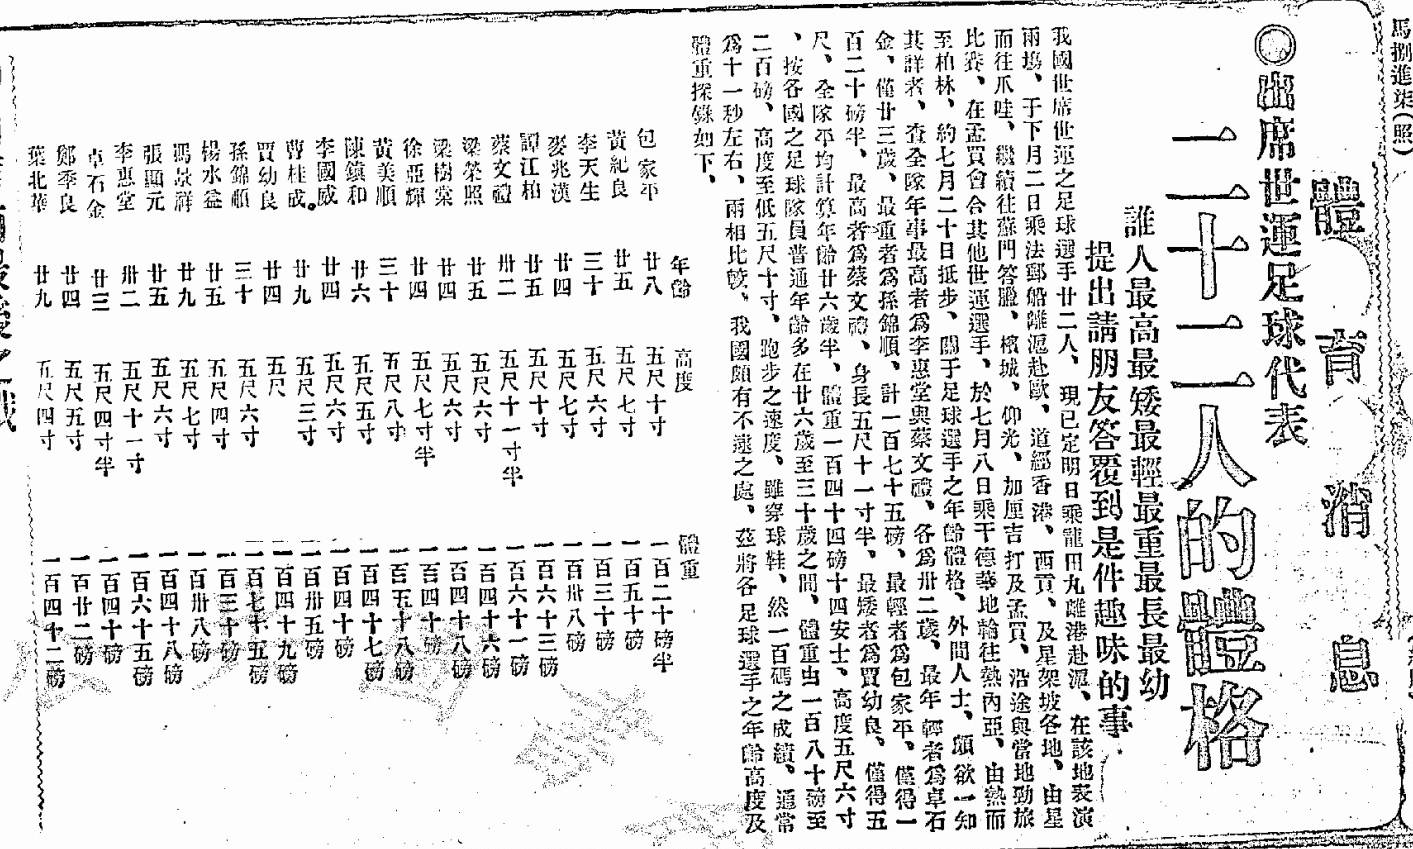 體育消息
◎出席世運足球代表
二十二人的體格
誰人最高最矮最輕最重最長最幼
提出請朋友答覆到是件趣味的事
我國世席世運之足球選手廿二人、現已定明日乘龍田丸離港赴滬、在該地表演
兩塲、于下月二日乘法郵船離滬赴歐、道經香港、西貢、及星架坡各地、由星
而往爪哇、繼續往蘇門答臘、檳城、仰光、加厘吉打及孟買、沿途與當地勁旅
比賽、在孟買會合其他世運選手、於七月八日乘干德華地輪往熱內亞、由熱而
至柏林、約七月二十日抵步、關于足球選手之年齡體格、外間人士、頗欲一知
其詳者、查全隊年事最高者爲李惠堂與蔡文禮、各爲卅二歲、最年輕者爲卓石
金、僅廿三歲、最重者爲孫錦順、計一百七十五磅、最輕者爲包家平、僅得一
百二十磅半、最高者爲蔡文禮、身長五尺十一寸半、最矮者爲賈幼良、僅得五
尺、全隊平均計算年齡廿六歲半、體重一百四十四磅十四安士、高度五尺六寸
、按各國之足球隊員普通年齡多在廿六歲至三十歲之間、體重由一百八十磅至
二百磅、高度至低五尺十寸、跑步之速度、雖穿球鞋、然一百碼之成績、通常
爲十一秒左右、兩相比較、我國頗有不逮之處、茲將各足球選手之年齡高度及
體重探錄如下、
年齡 高度 體重
包家平 廿八 五尺十寸 一百二十磅半
黃紀良 廿五 五尺七寸 一百五十磅
李天生 三十 五尺六寸 一百三十磅
麥兆漢 廿四 五尺七寸 一百卅八磅
譚江柏 廿五 五尺十寸 一百六十三磅
蔡文禮 卅二 五尺十一寸半 一百六十一磅
梁榮照 廿五 五尺六寸 一百四十六磅
梁樹棠 廿四 五尺六寸 一百四十八磅
徐亞輝 廿四 五尺七寸半 一百四十磅
黃美順 三十 五尺八寸 一百五十八磅
陳鎮和 廿六 五尺五寸 一百四十七磅
李國威 廿四 五尺六寸 一百四十磅
曹桂成 廿九 五尺三寸 一百卅五磅
賈幼良 廿四 五尺 一百四十九磅
孫錦順 三十 五尺六寸 一百七十五磅
楊水益 廿五 五尺四寸 一百三十磅
馮景祥 廿九 五尺七寸 一百卅八磅
張顯元 廿五 五尺六寸 一百四十八磅
李惠堂 卅二 五尺十一寸 一百六十五磅
卓石金 廿三 五尺四寸半 一百四十磅
鄭季良 廿四 五尺五寸 一百廿二磅
葉北華 廿九 五尺四寸 一百四十二磅